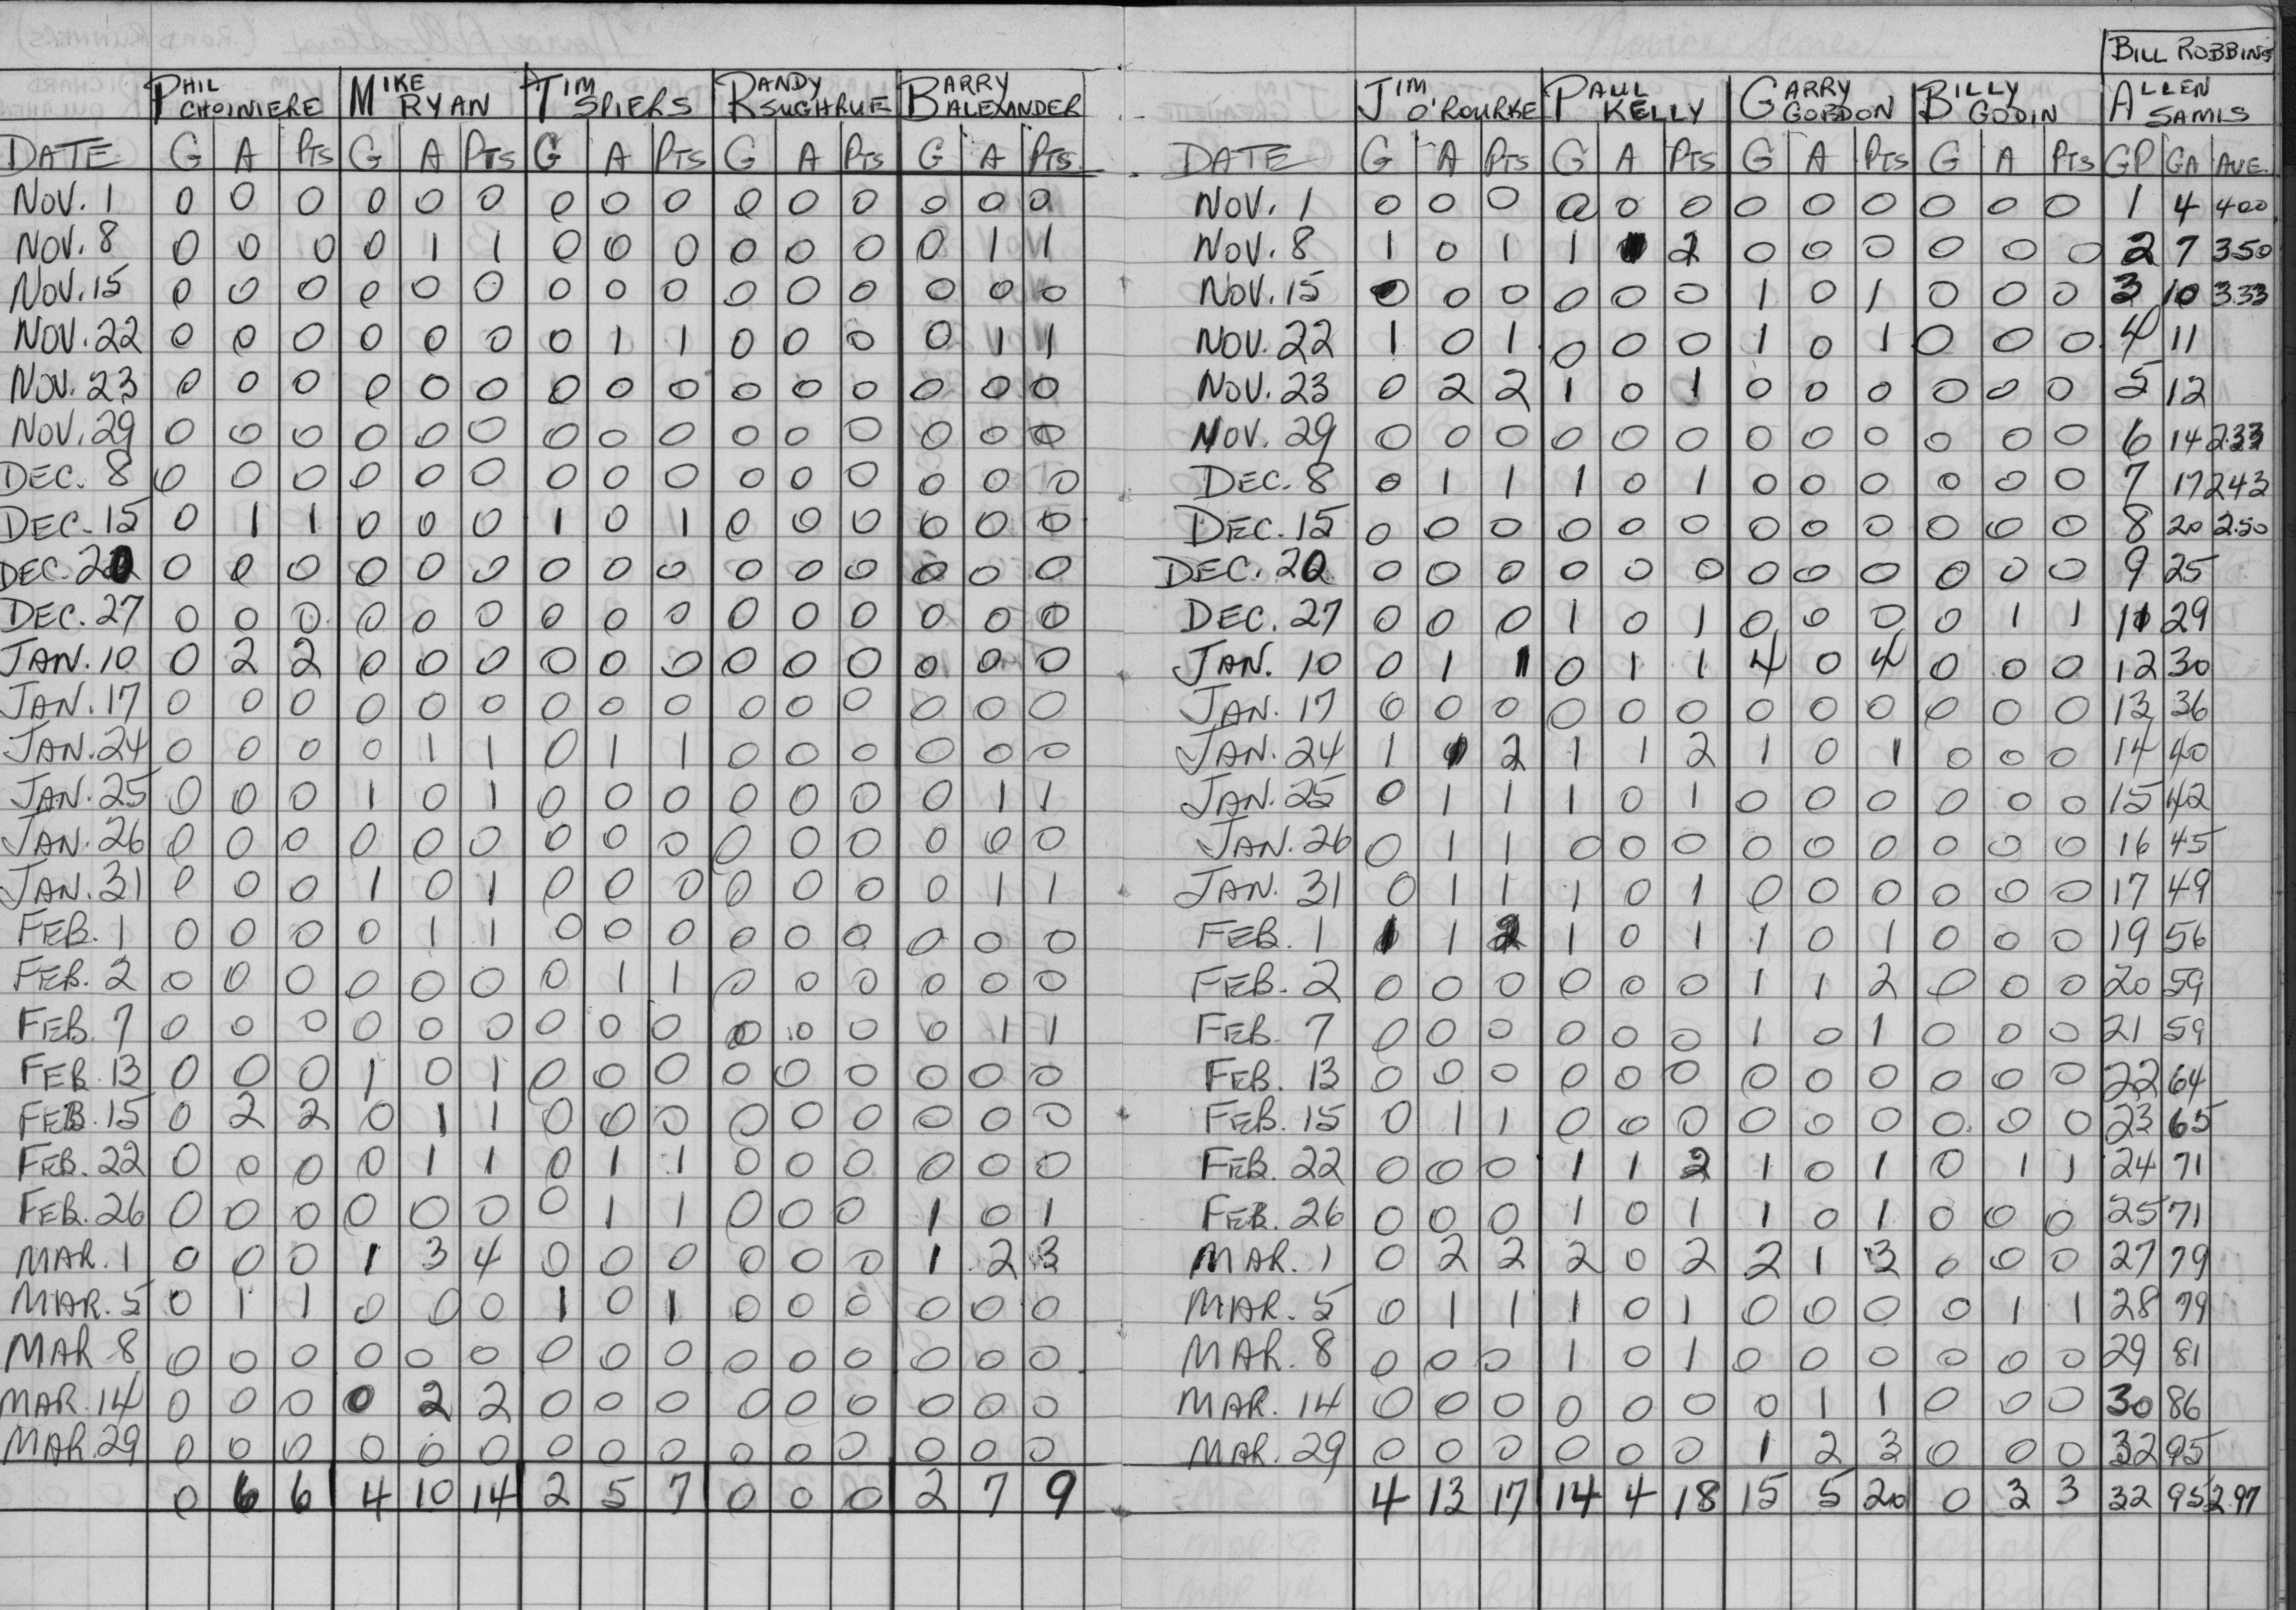 PHIL CHOINIERE MIKE RYAN TIM SPIERS RANDY SUGHRUE BARRY ALEXANDER
DATE G A PTS G A PTS G A PTS G A PTS G A PTS
NOV. 1 0 0 0 0 0 0 0 0 0 0 0 0 0 0 0
NOV. 8 0 0 0 0 1 1 0 0 0 0 0 0 0 1 1
NOV. 15 0 0 0 0 0 0 0 0 0 0 0 0 0 0 0
NOV. 22 0 0 0 0 0 0 0 1 1 0 0 0 0 1 1
NOV. 23 0 0 0 0 0 0 0 0 0 0 0 0 0 0 0
NOV. 29 0 0 0 0 0 0 0 0 0 0 0 0 0 0 0
DEC. 8 0 0 0 0 0 0 0 0 0 0 0 0 0 0 0
DEC. 15 0 1 1 0 0 0 1 0 1 0 0 0 0 0 0
DEC. 20 0 0 0 0 0 0 0 0 0 0 0 0 0 0 0
DEC. 27 0 0 0 0 0 0 0 0 0 0 0 0 0 0 0
JAN. 10 0 2 2 0 0 0 0 0 0 0 0 0 0 0 0
JAN. 17 0 0 0 0 0 0 0 0 0 0 0 0 0 0 0
JAN. 24 0 0 0 0 1 1 0 1 1 0 0 0 0 0 0
JAN. 25 0 0 0 1 0 1 0 0 0 0 0 0 0 1 1
JAN. 26 0 0 0 0 0 0 0 0 0 0 0 0 0 0 0
JAN. 31 0 0 0 1 0 1 0 0 0 0 0 0 0 1 1
FEB. 1 0 0 0 0 1 1 0 0 0 0 0 0 0 0 0
FEB. 2 0 0 0 0 0 0 0 1 1 0 0 0 0 0 0
FEB. 7 0 0 0 0 0 0 0 0 0 0 0 0 0 1 1
FEB. 13 0 0 0 1 0 1 0 0 0 0 0 0 0 0 0
FEB. 15 0 2 2 0 1 1 0 0 0 0 0 0 0 0 0
FEB. 22 0 0 0 0 1 1 0 1 1 0 0 0 0 0 0
FEB. 26 0 0 0 0 0 0 0 1 1 0 0 0 1 0 1
MAR. 1 0 0 0 1 3 4 0 0 0 0 0 0 1 2 3
MAR. 5 0 1 1 0 0 0 1 0 1 0 0 0 0 0 0
MAR 8 0 0 0 0 0 0 0 0 0 0 0 0 0 0 0
MAR. 14 0 0 0 0 2 2 0 0 0 0 0 0 0 0 0
MAR 29 0 0 0 0 0 0 0 0 0 0 0 0 0 0 0
0 6 6 4 10 14 2 5 7 0 0 0 2 7 9
BILL ROBBINS
JIM O'ROURKE PAUL KELLY GARRY GORDON BILLY GODIN ALLEN SAMIS
DATE G A PTS G A PTS G A PTS G A PTS GP GA AVE.
NOV. 1 0 0 0 0 0 0 0 0 0 0 0 0 1 4 400
NOV. 8 1 0 1 1 1 2 0 0 0 0 0 0 2 7 350
NOV. 15 0 0 0 0 0 0 1 0 1 0 0 0 3 10 3.33
NOV. 22 1 0 1 0 0 0 1 0 1 0 0 0 4 11
NOV. 23 0 2 2 1 0 1 0 0 0 0 0 0 5 12
NOV. 29 0 0 0 0 0 0 0 0 0 0 0 0 6 14 2.33
DEC. 8 0 1 1 1 0 1 0 0 0 0 0 0 7 17 243
DEC. 15 0 0 0 0 0 0 0 0 0 0 0 0 8 20 2.50
DEC. 20 0 0 0 0 0 0 0 0 0 0 0 0 9 25
DEC. 27 0 0 0 1 0 1 0 0 0 0 1 1 11 29
JAN. 10 0 1 1 0 1 1 4 0 4 0 0 0 12 30
JAN. 17 0 0 0 0 0 0 0 0 0 0 0 0 13 36
JAN. 24 1 1 2 1 1 2 1 0 1 0 0 0 14 40
JAN. 25 0 1 1 1 0 1 0 0 0 0 0 0 15 42
JAN. 26 0 1 1 0 0 0 0 0 0 0 0 0 16 45
JAN. 31 0 1 1 1 0 1 0 0 0 0 0 0 17 49
FEB. 1 1 1 2 1 0 1 1 0 1 0 0 0 19 56
FEB. 2 0 0 0 0 0 0 1 1 2 0 0 0 20 59
FEB. 7 0 0 0 0 0 0 1 0 1 0 0 0 21 59
FEB. 13 0 0 0 0 0 0 0 0 0 0 0 0 22 64
FEB. 15 0 1 1 0 0 0 0 0 0 0 0 0 23 65
FEB. 22 0 0 0 1 1 2 1 0 1 0 1 1 24 71
FEB. 26 0 0 0 1 0 1 1 0 1 0 0 0 25 71
MAR. 1 0 2 2 2 0 2 2 1 3 0 0 0 27 79
MAR. 5 0 1 1 1 0 1 0 0 0 0 1 1 28 79
MAR. 8 0 0 0 1 0 1 0 0 0 0 0 0 29 81
MAR. 14 0 0 0 0 0 0 0 1 1 0 0 0 30 86
MAR. 29 0 0 0 0 0 0 1 2 3 0 0 0 32 95
4 13 17 14 4 18 15 5 20 0 3 3 32 95 2.97